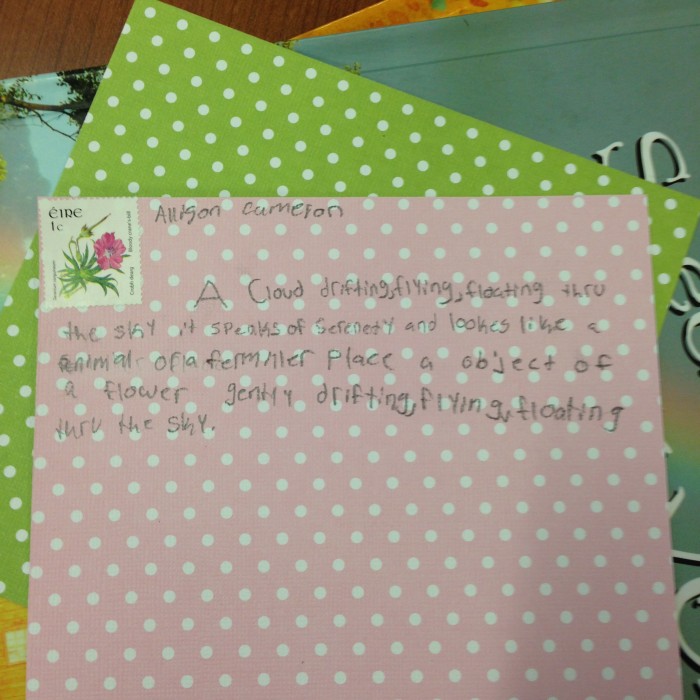 ÉIRE
1c
Allison Cameron
A Cloud drifting,flying,floating thru
the sky it speaks of serenety and lookes like a
animal or a fermiller place a object of
a flower gently drifting,flying,floating
thru the sky.